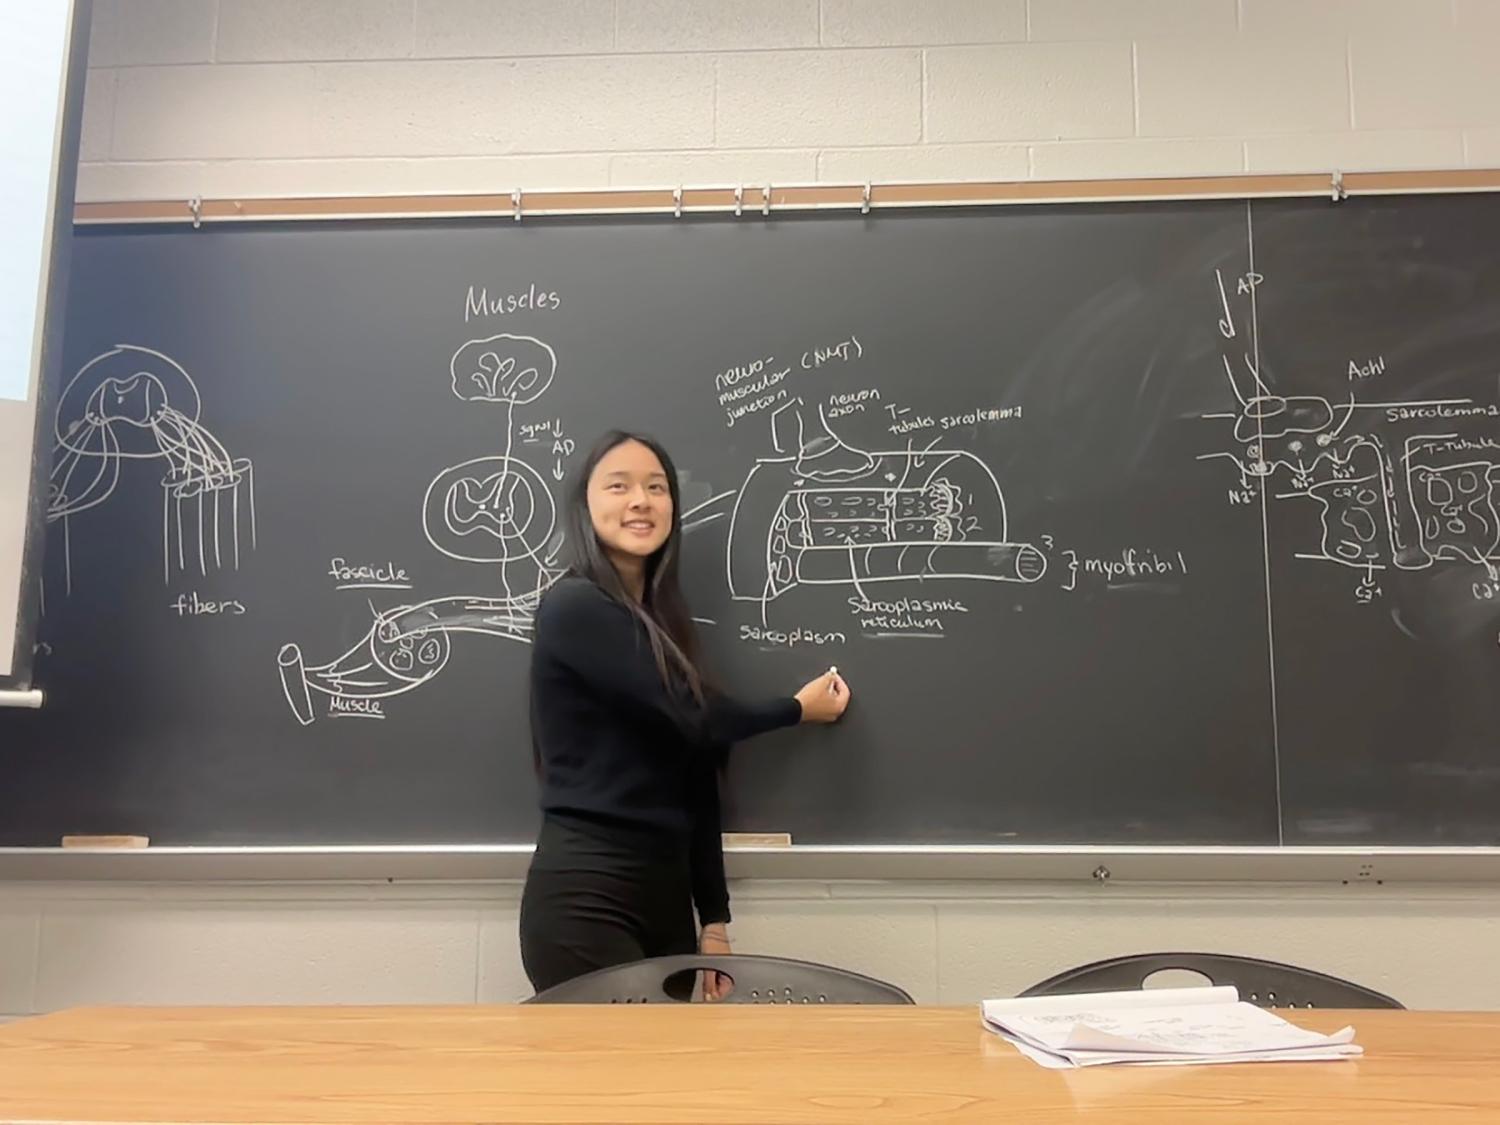 Muscles
fibers
signal
AP
fascicle
Muscle
neuro-
muscular
junction
(NMJ)
neuron
axon
T-
tubules
sarcolemma
1
2
3
myofribil
Sarcoplasm
Sarcoplasmic
reticulum
AP
Achl
Sarcolemma
T-Tubule
Na+
Na+
Na+
Ca2+
Ca2+